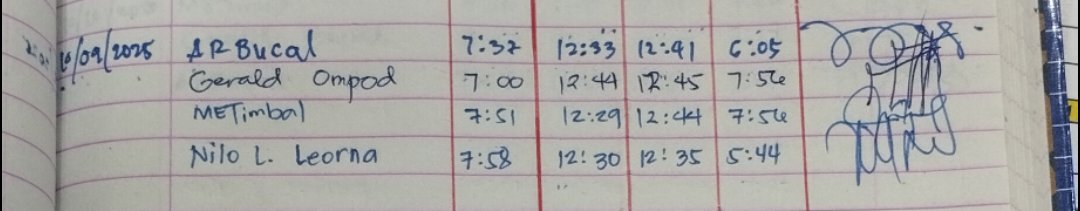 10/09/2025 AR Bucal 7:37 12:33 12:41 6:05
Gerald Ompod 7:00 12:44 12:45 7:56
METimbal 7:51 12:29 12:44 7:56
Nilo L. Leorna 7:58 12:30 12:35 5:44